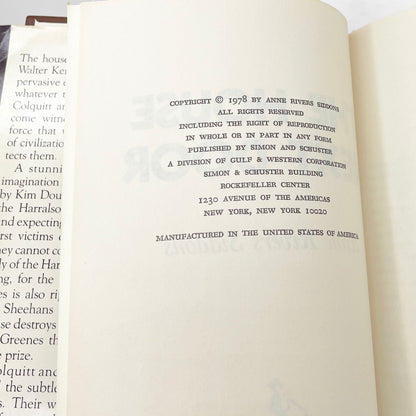 The house
Walter Ker
pervasive e
whatever t
Colquitt an
come witne
force that w
of civilizatio
tects them.
A stunni
imagination
by Kim Dou
the Harralso
and expecting
irst victims o
they cannot co
dy of the Har
ng, for the
es is also rig
Sheehans
se destroys
Greenes th
e prize.
olquitt and
d the subtle
COPYRIGHT © 1978 BY ANNE RIVERS SIDDONS
ALL RIGHTS RESERVED
INCLUDING THE RIGHT OF REPRODUCTION
IN WHOLE OR IN PART IN ANY FORM
PUBLISHED BY SIMON AND SCHUSTER
A DIVISION OF GULF & WESTERN CORPORATION
SIMON & SCHUSTER BUILDING
ROCKEFELLER CENTER
1230 AVENUE OF THE AMERICAS
NEW YORK, NEW YORK 10020
MANUFACTURED IN THE UNITED STATES OF AMERICA